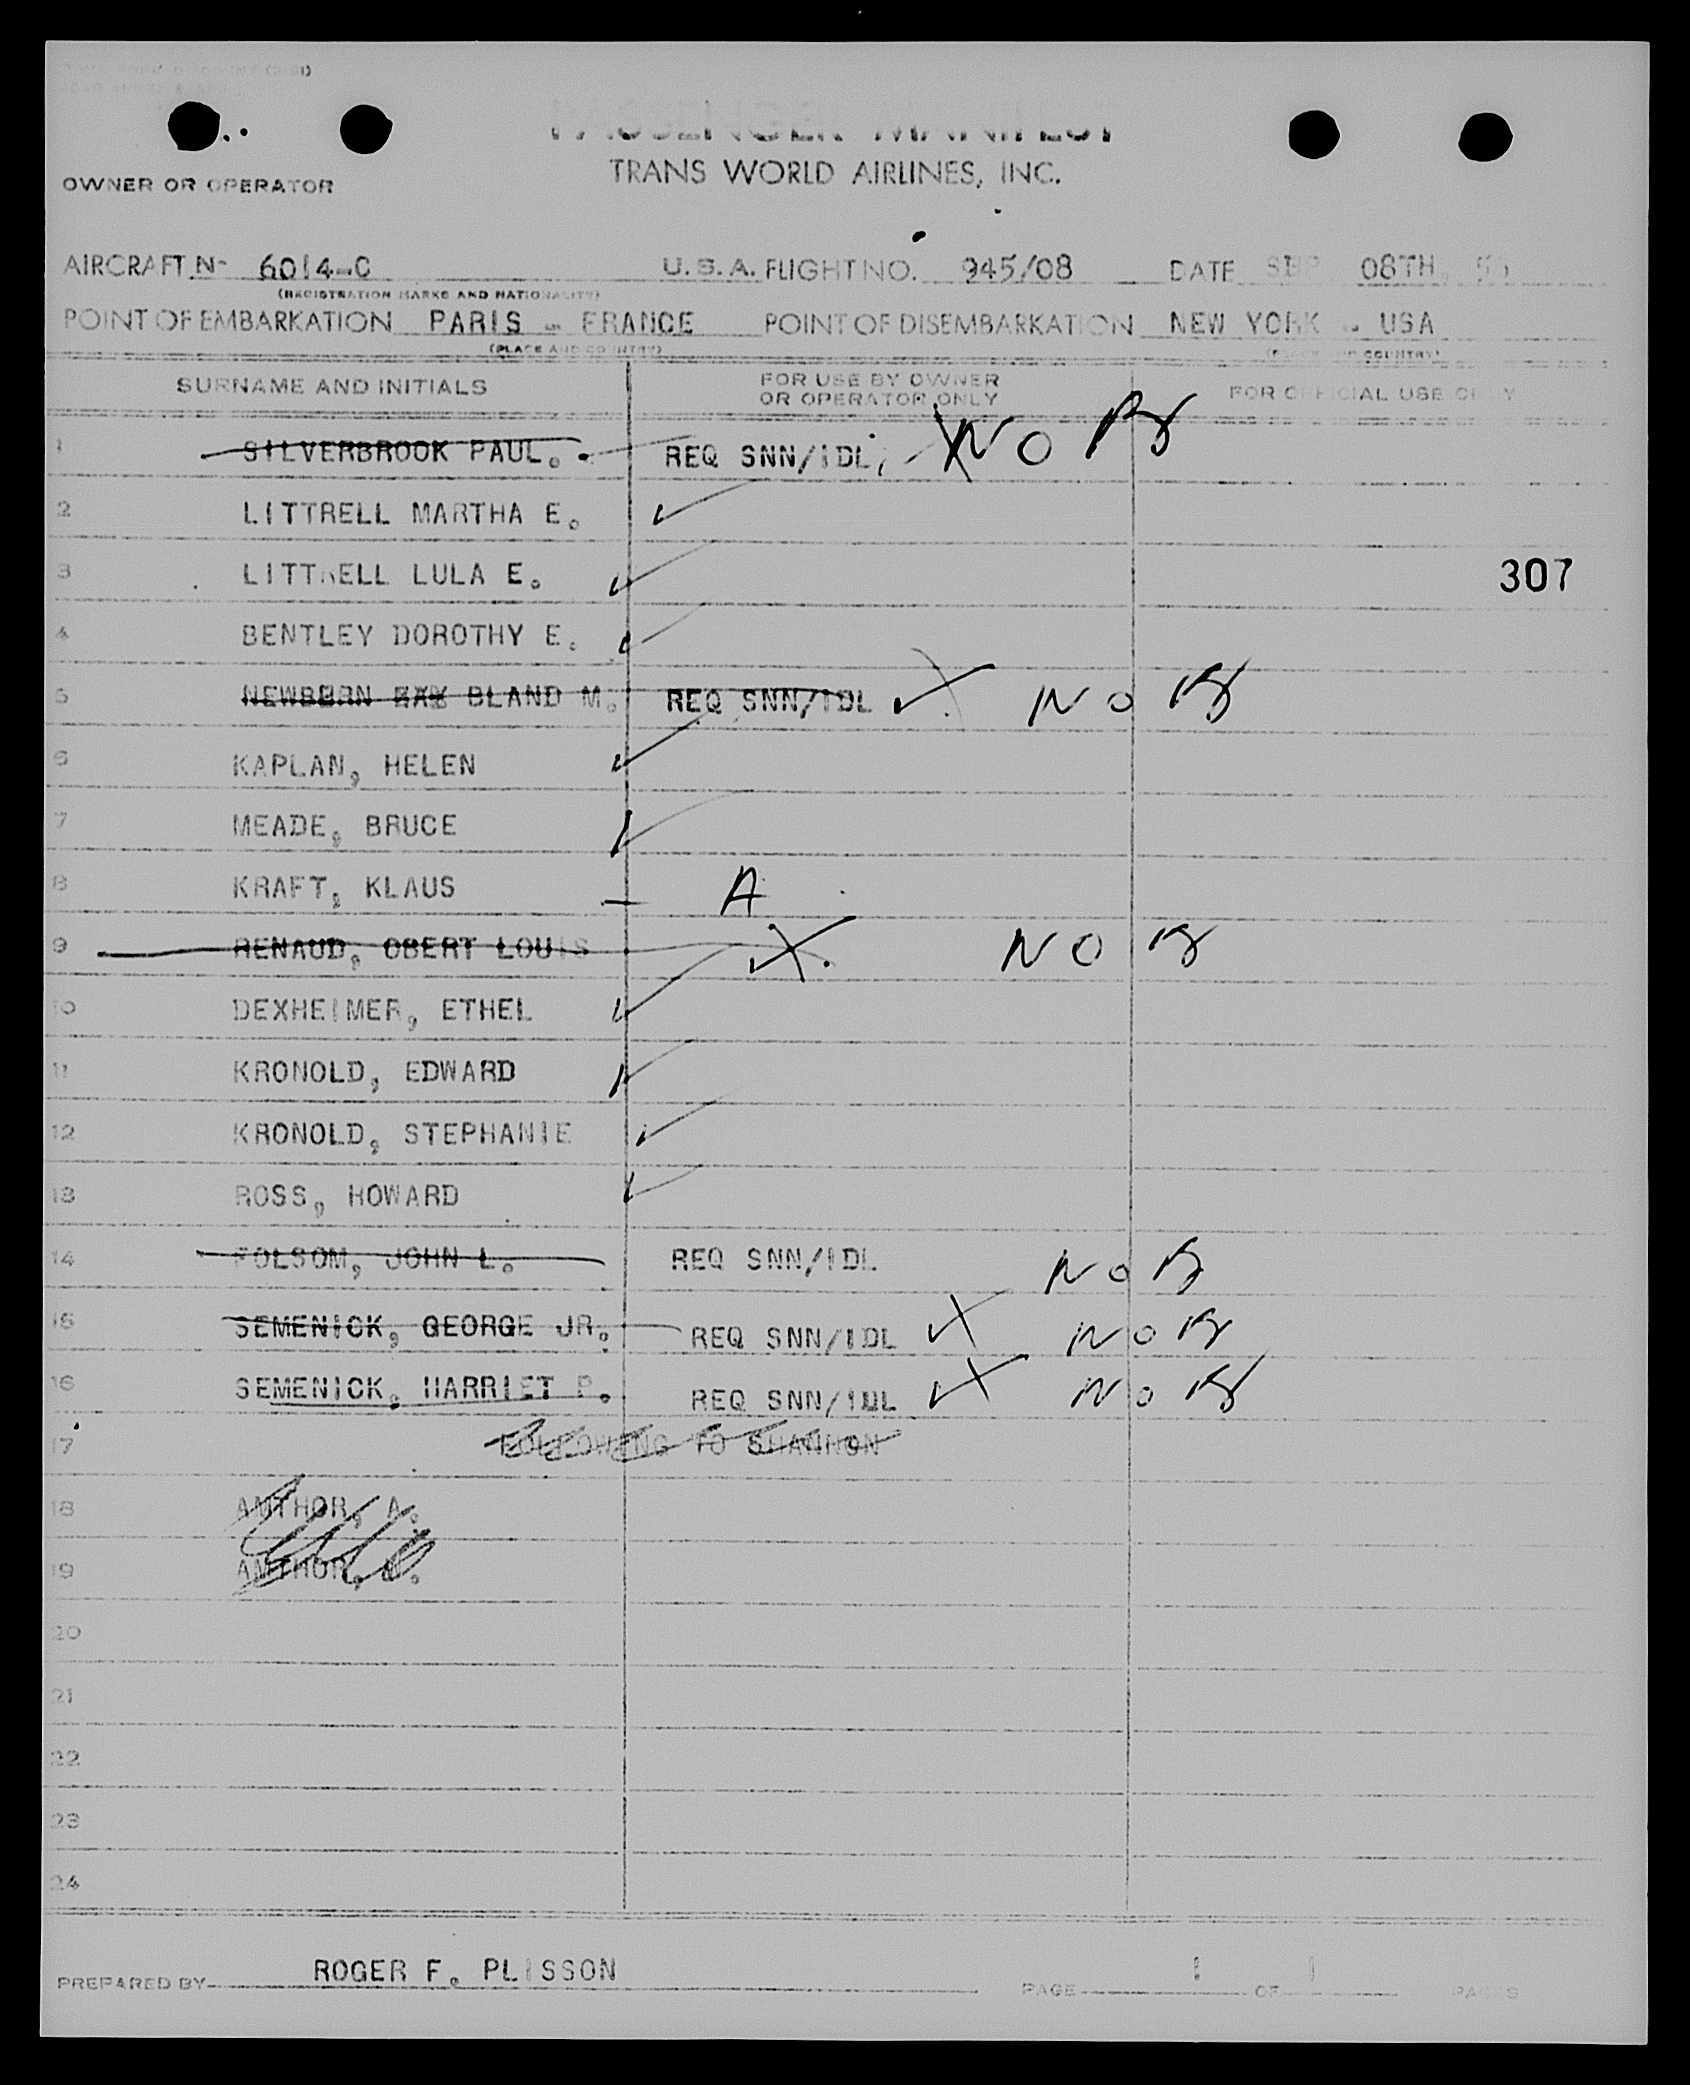 PASSENGER MANIFEST
TRANS WORLD AIRLINES, INC.
OWNER OR OPERATOR
AIRCRAFT N- 6014-C U.S.A. FLIGHT NO. 945/08 DATE SEP 08TH, 55
(REGISTRATION MARKS AND NATIONALITY)
POINT OF EMBARKATION PARIS - FRANCE POINT OF DISEMBARKATION NEW YORK - USA
(PLACE AND COUNTRY) (PLACE AND COUNTRY)
SURNAME AND INITIALS FOR USE BY OWNER OR OPERATOR ONLY FOR OFFICIAL USE ONLY
1 SILVERBROOK PAUL. REQ SNN/IDL No B
2 LITTRELL MARTHA E.
3 LITTRELL LULA E. 307
4 BENTLEY DOROTHY E.
5 NEWBERN BLAND M. REQ SNN/IDL No B
6 KAPLAN, HELEN
7 MEADE, BRUCE
8 KRAFT, KLAUS A
9 RENAUD, OBERT LOUIS No B
10 DEXHEIMER, ETHEL
11 KRONOLD, EDWARD
12 KRONOLD, STEPHANIE
13 ROSS, HOWARD
14 FOLSOM, JOHN L. REQ SNN/IDL No B
15 SEMENICK, GEORGE JR. REQ SNN/IDL No B
16 SEMENICK, HARRIET P. REQ SNN/IDL No B
17 FOLLOWING TO SHANNON
18 AMTHOR, A.
19 AMTHOR,
20
21
22
23
24
PREPARED BY ROGER F. PLISSON PAGE 1 OF 1 PAGES